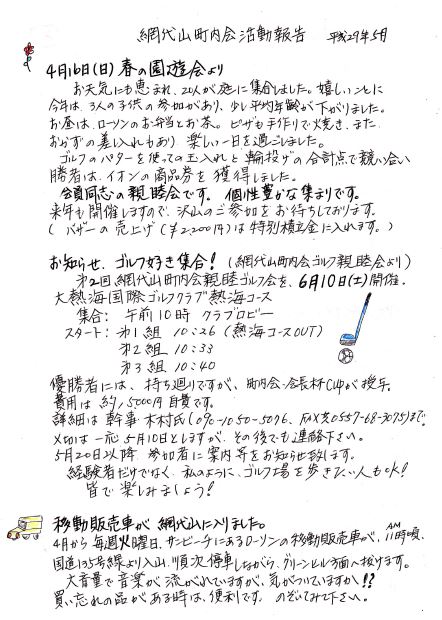 網代山町内会活動報告 平成29年5月
4月16日(日) 春の園遊会より
お天気にも恵まれ、21人が庭に集合しました。嬉しいことに
今年は、3人の子供の参加があり、少し平均年齢が下がりました。
お昼は、ローソンのお弁当とお茶。ピザも手作りで焼き、また
おかずの差し入れもあり 楽しい一日を過ごしました。
ゴルフのパターを使っての玉入れと輪投げの合計点で競い合い
勝者は、イオンの商品券を獲得しました。
会員同志の親睦会です。個性豊かな集まりです。
来年も開催しますので、沢山のご参加をお待ちしております。
(バザーの売上げ(¥2,200円)は特別積立金に入れます。)
お知らせ、ゴルフ好き集合! (網代山町内会ゴルフ親睦会より)
第2回網代山町内会親睦ゴルフ会を、6月10日(土)開催。
大熱海国際ゴルフクラブ熱海コース
集合: 午前10時 クラブロビー
スタート: 第1組 10:26 (熱海コースOUT)
第2組 10:33
第3組 10:40
優勝者には、持ち廻りですが、町内会会長杯CUPが授与。
費用は 約15000円自費です。
詳細は幹事 木村氏(090-1050-5096、FAX 0557-68-3095)まで。
〆切は一応 5月10日としますが、その後でも連絡下さい。
5月20日以降 参加者に案内等をお知らせ致します。
経験者だけでなく、私のように、ゴルフ場を歩きたい人もOK!
皆で楽しみましょう!
移動販売車が 網代山に入りました。
4月から毎週火曜日、サンビーチにあるローソンの移動販売車が、AM11時頃、
国道135号線より入山、順次停車しながら、グリーンヒル方面へ抜けます。
大音量で音楽が流がれていますが、気がついていますか!?
買い忘れの品がある時は、便利です。のぞいてみて下さい。